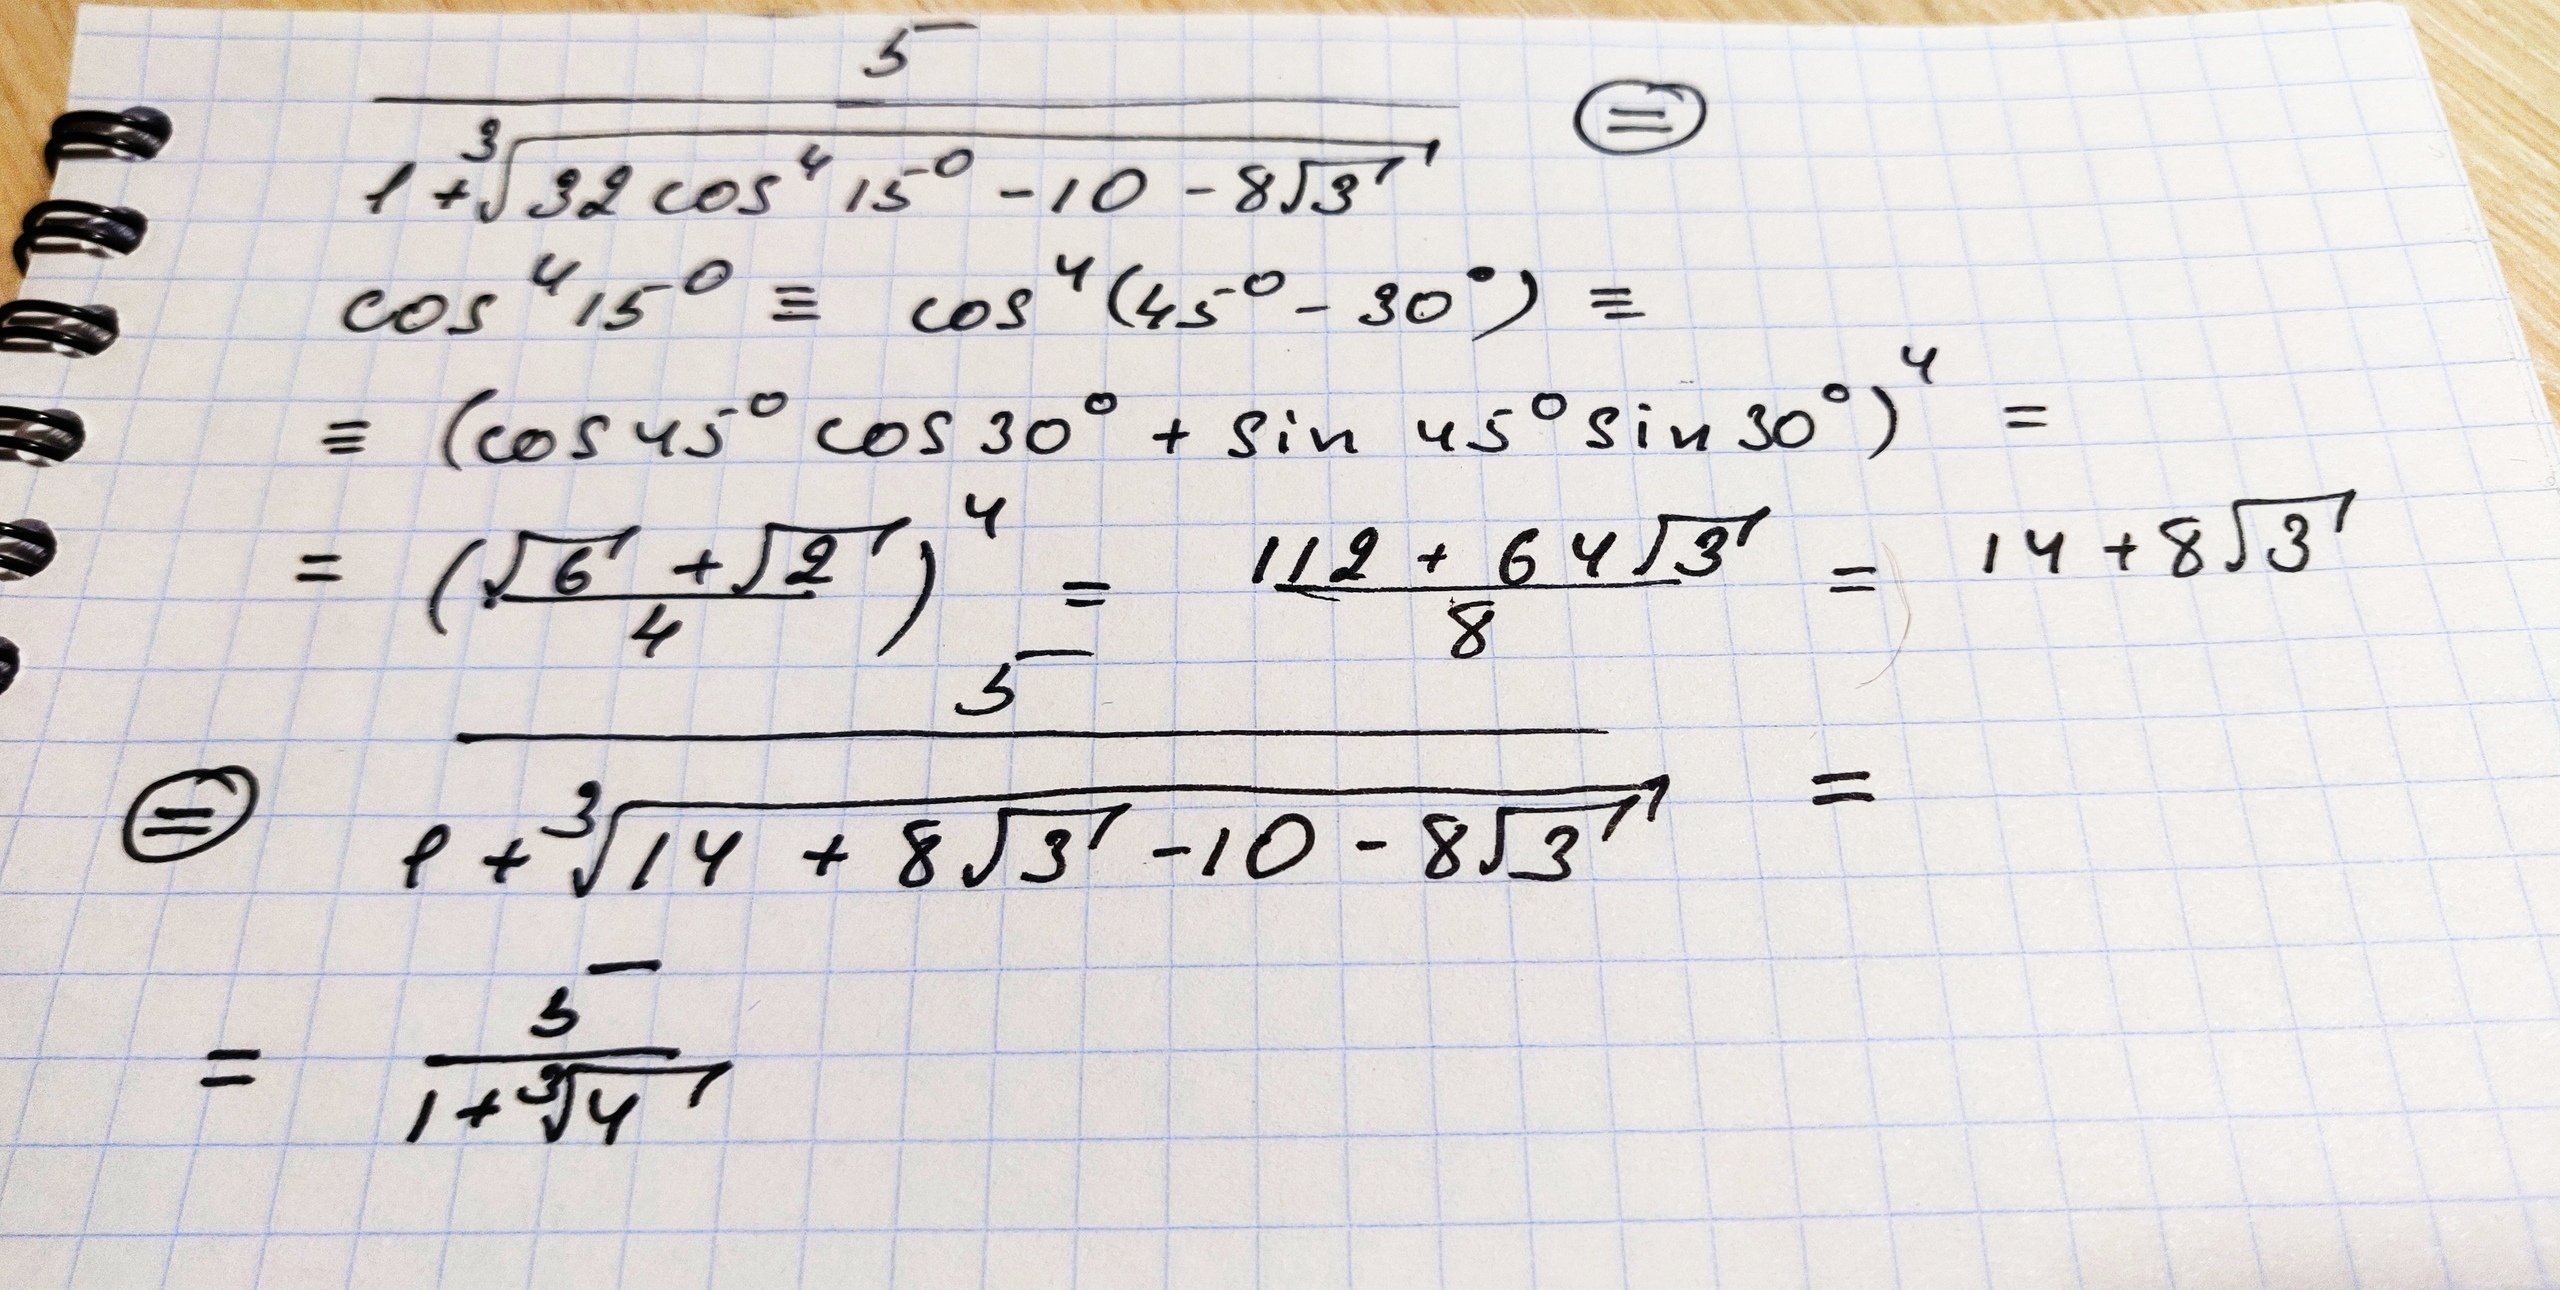 5 / (1 + ∛(32 cos⁴ 15⁰ - 10 - 8√3)) ⊜
cos⁴ 15⁰ ≡ cos⁴ (45⁰ - 30°) ≡
≡ (cos 45⁰ cos 30° + sin 45⁰ sin 30°)⁴ =
= ((√6 + √2) / 4)⁴ = (112 + 64√3) / 8 = 14 + 8√3
⊜ 5 / (1 + ∛(14 + 8√3 - 10 - 8√3)) =
= 5 / (1 + ∛4)